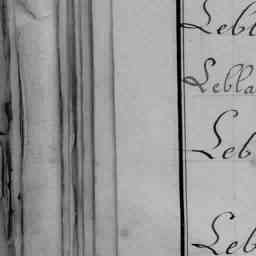 Lebl
Lebla
Leb
Leb